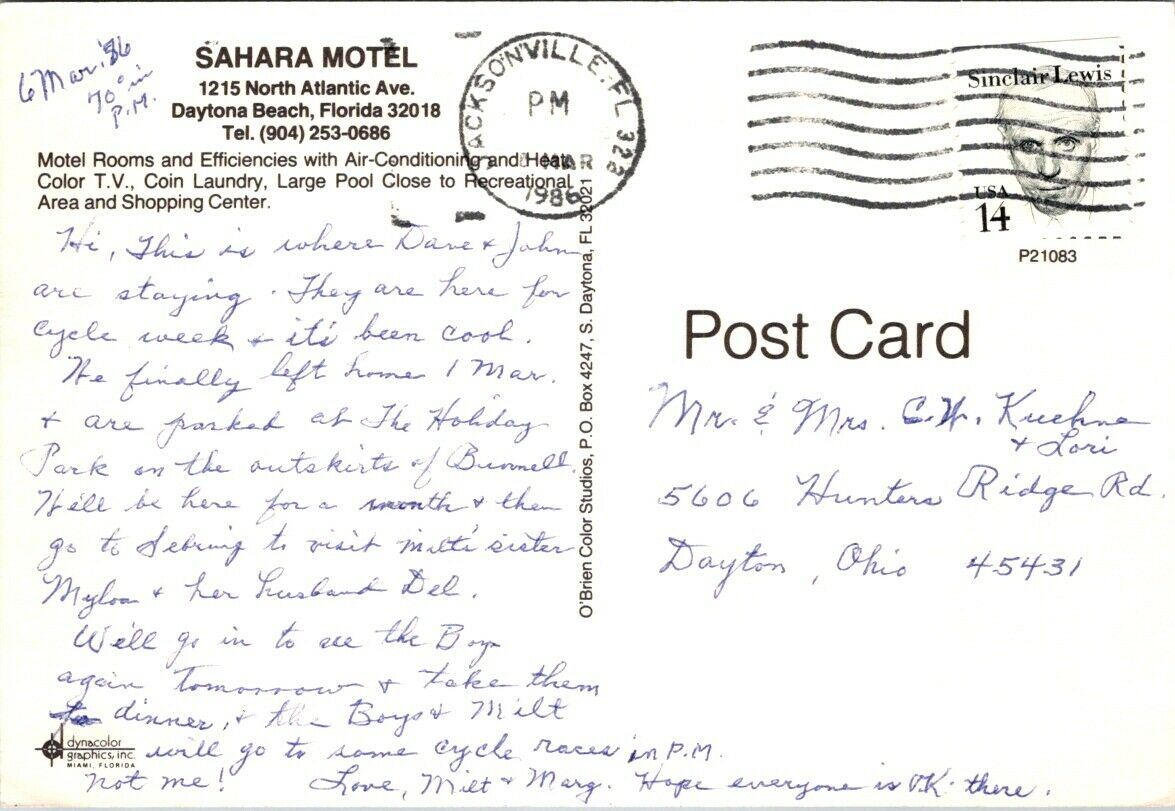 6 Mar. '86
70° in
P.M.
SAHARA MOTEL
1215 North Atlantic Ave.
Daytona Beach, Florida 32018
Tel. (904) 253-0686
Motel Rooms and Efficiencies with Air-Conditioning and Heat,
Color T.V., Coin Laundry, Large Pool Close to Recreational
Area and Shopping Center.
Hi, This is where Dave & John
are staying. They are here for
cycle week & it's been cool.
We finally left home 1 Mar.
& are parked at The Holiday
Park on the outskirts of Bunnell.
We'll be here for a month & then
go to Sebring to visit Milt's sister
Myloa & her husband Del.
We'll go in to see the Boys
again Tomorrow & take them
to dinner, & the Boys & Milt
will go to some cycle races in P.M.
Not me! Love, Milt & Marg. Hope everyone is O.K. there.
dynacolor
graphics, inc.
MIAMI, FLORIDA
O'Brien Color Studios, P.O. Box 4247, S. Daytona, FL 32021
JACKSONVILLE, FL
PM
MAR
1986
Sinclair Lewis
USA
14
P21083
Post Card
Mr. & Mrs. C.W. Kuehne
& Lori
5606 Hunters Ridge Rd.
Dayton, Ohio 45431